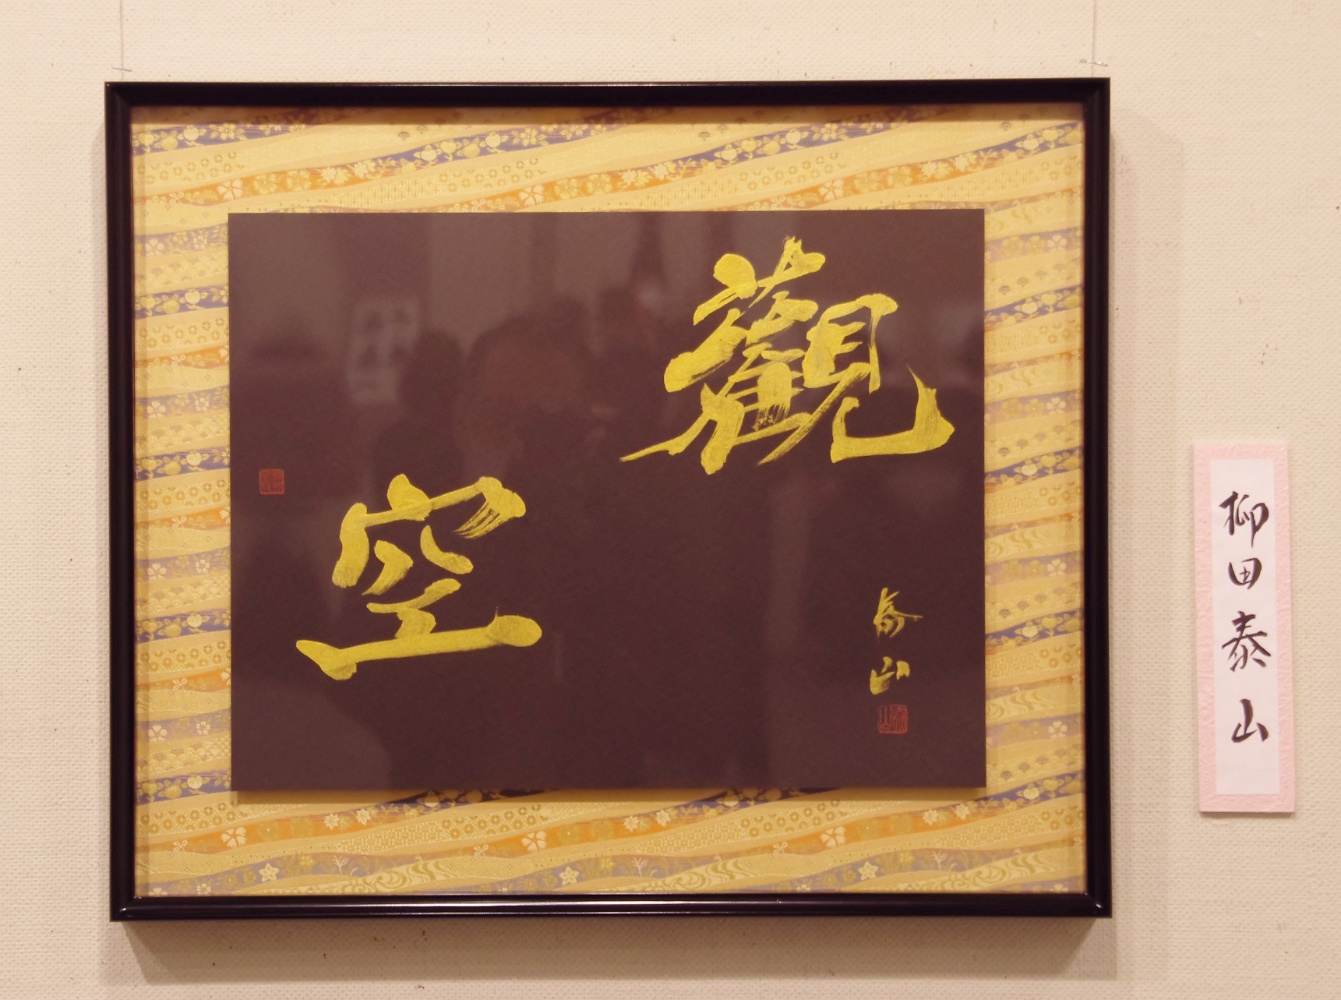 觀
空
泰山
柳田泰山